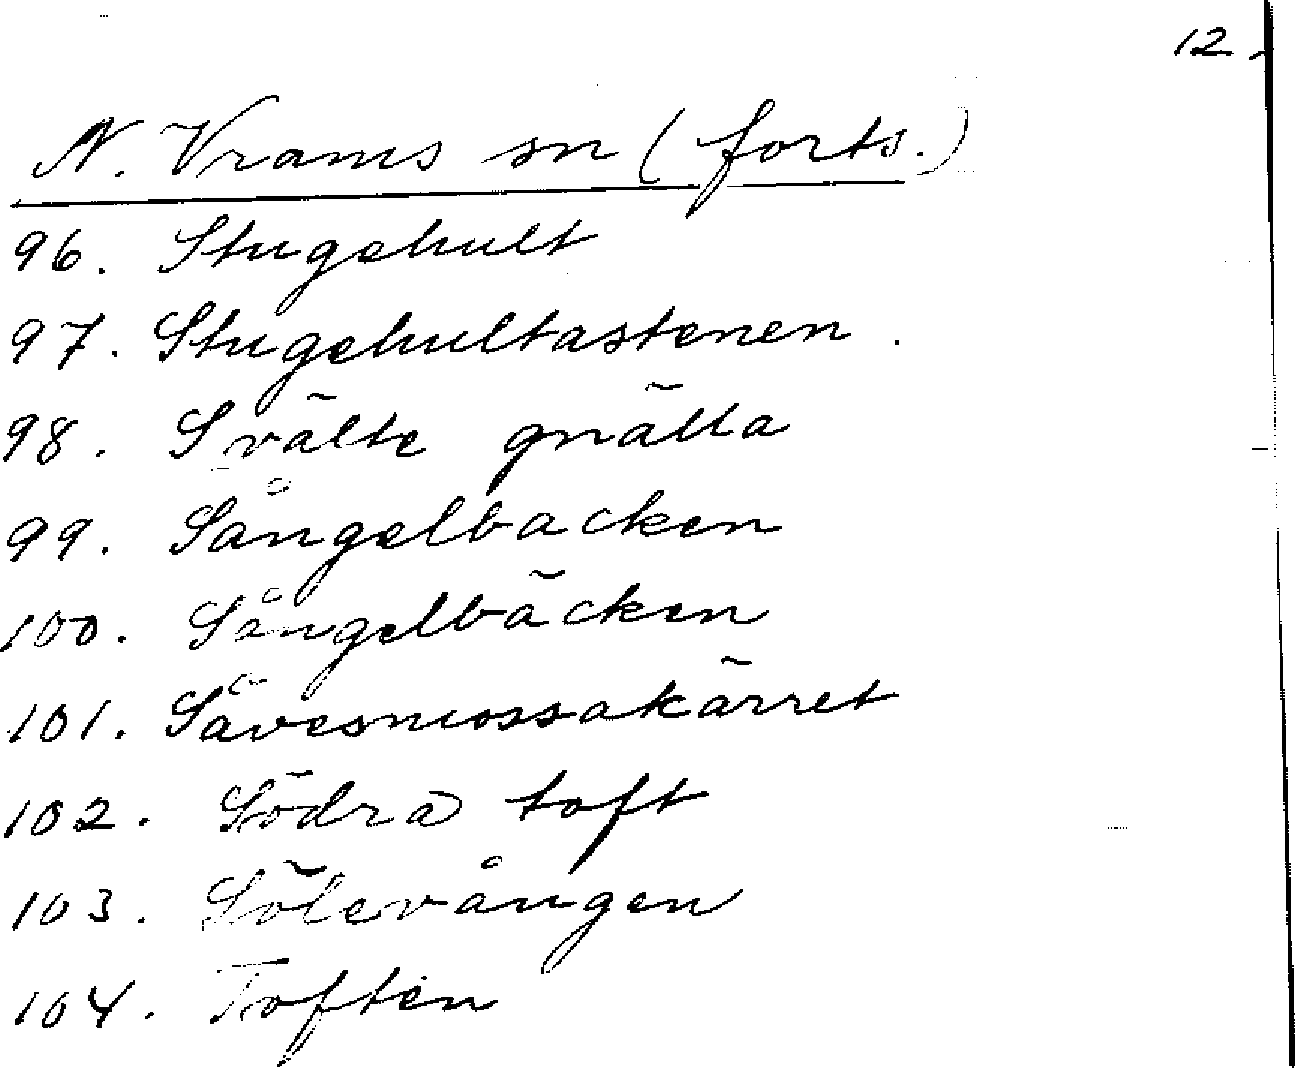 12.
N. Vrams sn (forts.)
96. Stugehult
97. Stugehultastenen.
98. Svälte gnälla
99. Sångelbacken
100. Sångelbäcken
101. Såvesmossakärret
102. Södra toft
103. Sölevången
104. Toften